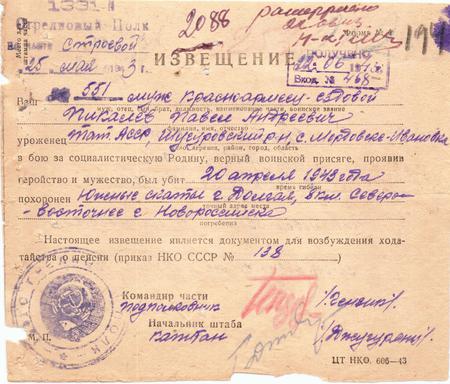 1331
Стрелковый Полк
Часть Строевой
25 мая 1943 г.
2088
Форма № 4
194
ПОЛУЧЕНО
22.06.1943
Вход. № 468
ИЗВЕЩЕНИЕ
Ваш муж Красноармеец-рядовой
муж, отец, сын, брат, должность, наименование части, воинское звание
Пикалев Павел Андреевич
фамилия, имя, отчество
уроженец Тат АССР, р-н, с. Мордовско-Ивановка
деревня, район, город, область
в бою за социалистическую Родину, верный воинской присяге, проявив
геройство и мужество, был убит 20 апреля 1943 года
время гибели
похоронен Южные скаты г. Долгая, 8 км. Северо-
точный адрес места
-Восточнее г. Новороссийска
погребения
Настоящее извещение является документом для возбуждения хода-
тайства о пенсии (приказ НКО СССР № 138
Командир части
подполковник
Начальник штаба
капитан
М. П.
ЦТ НКО. 606—43